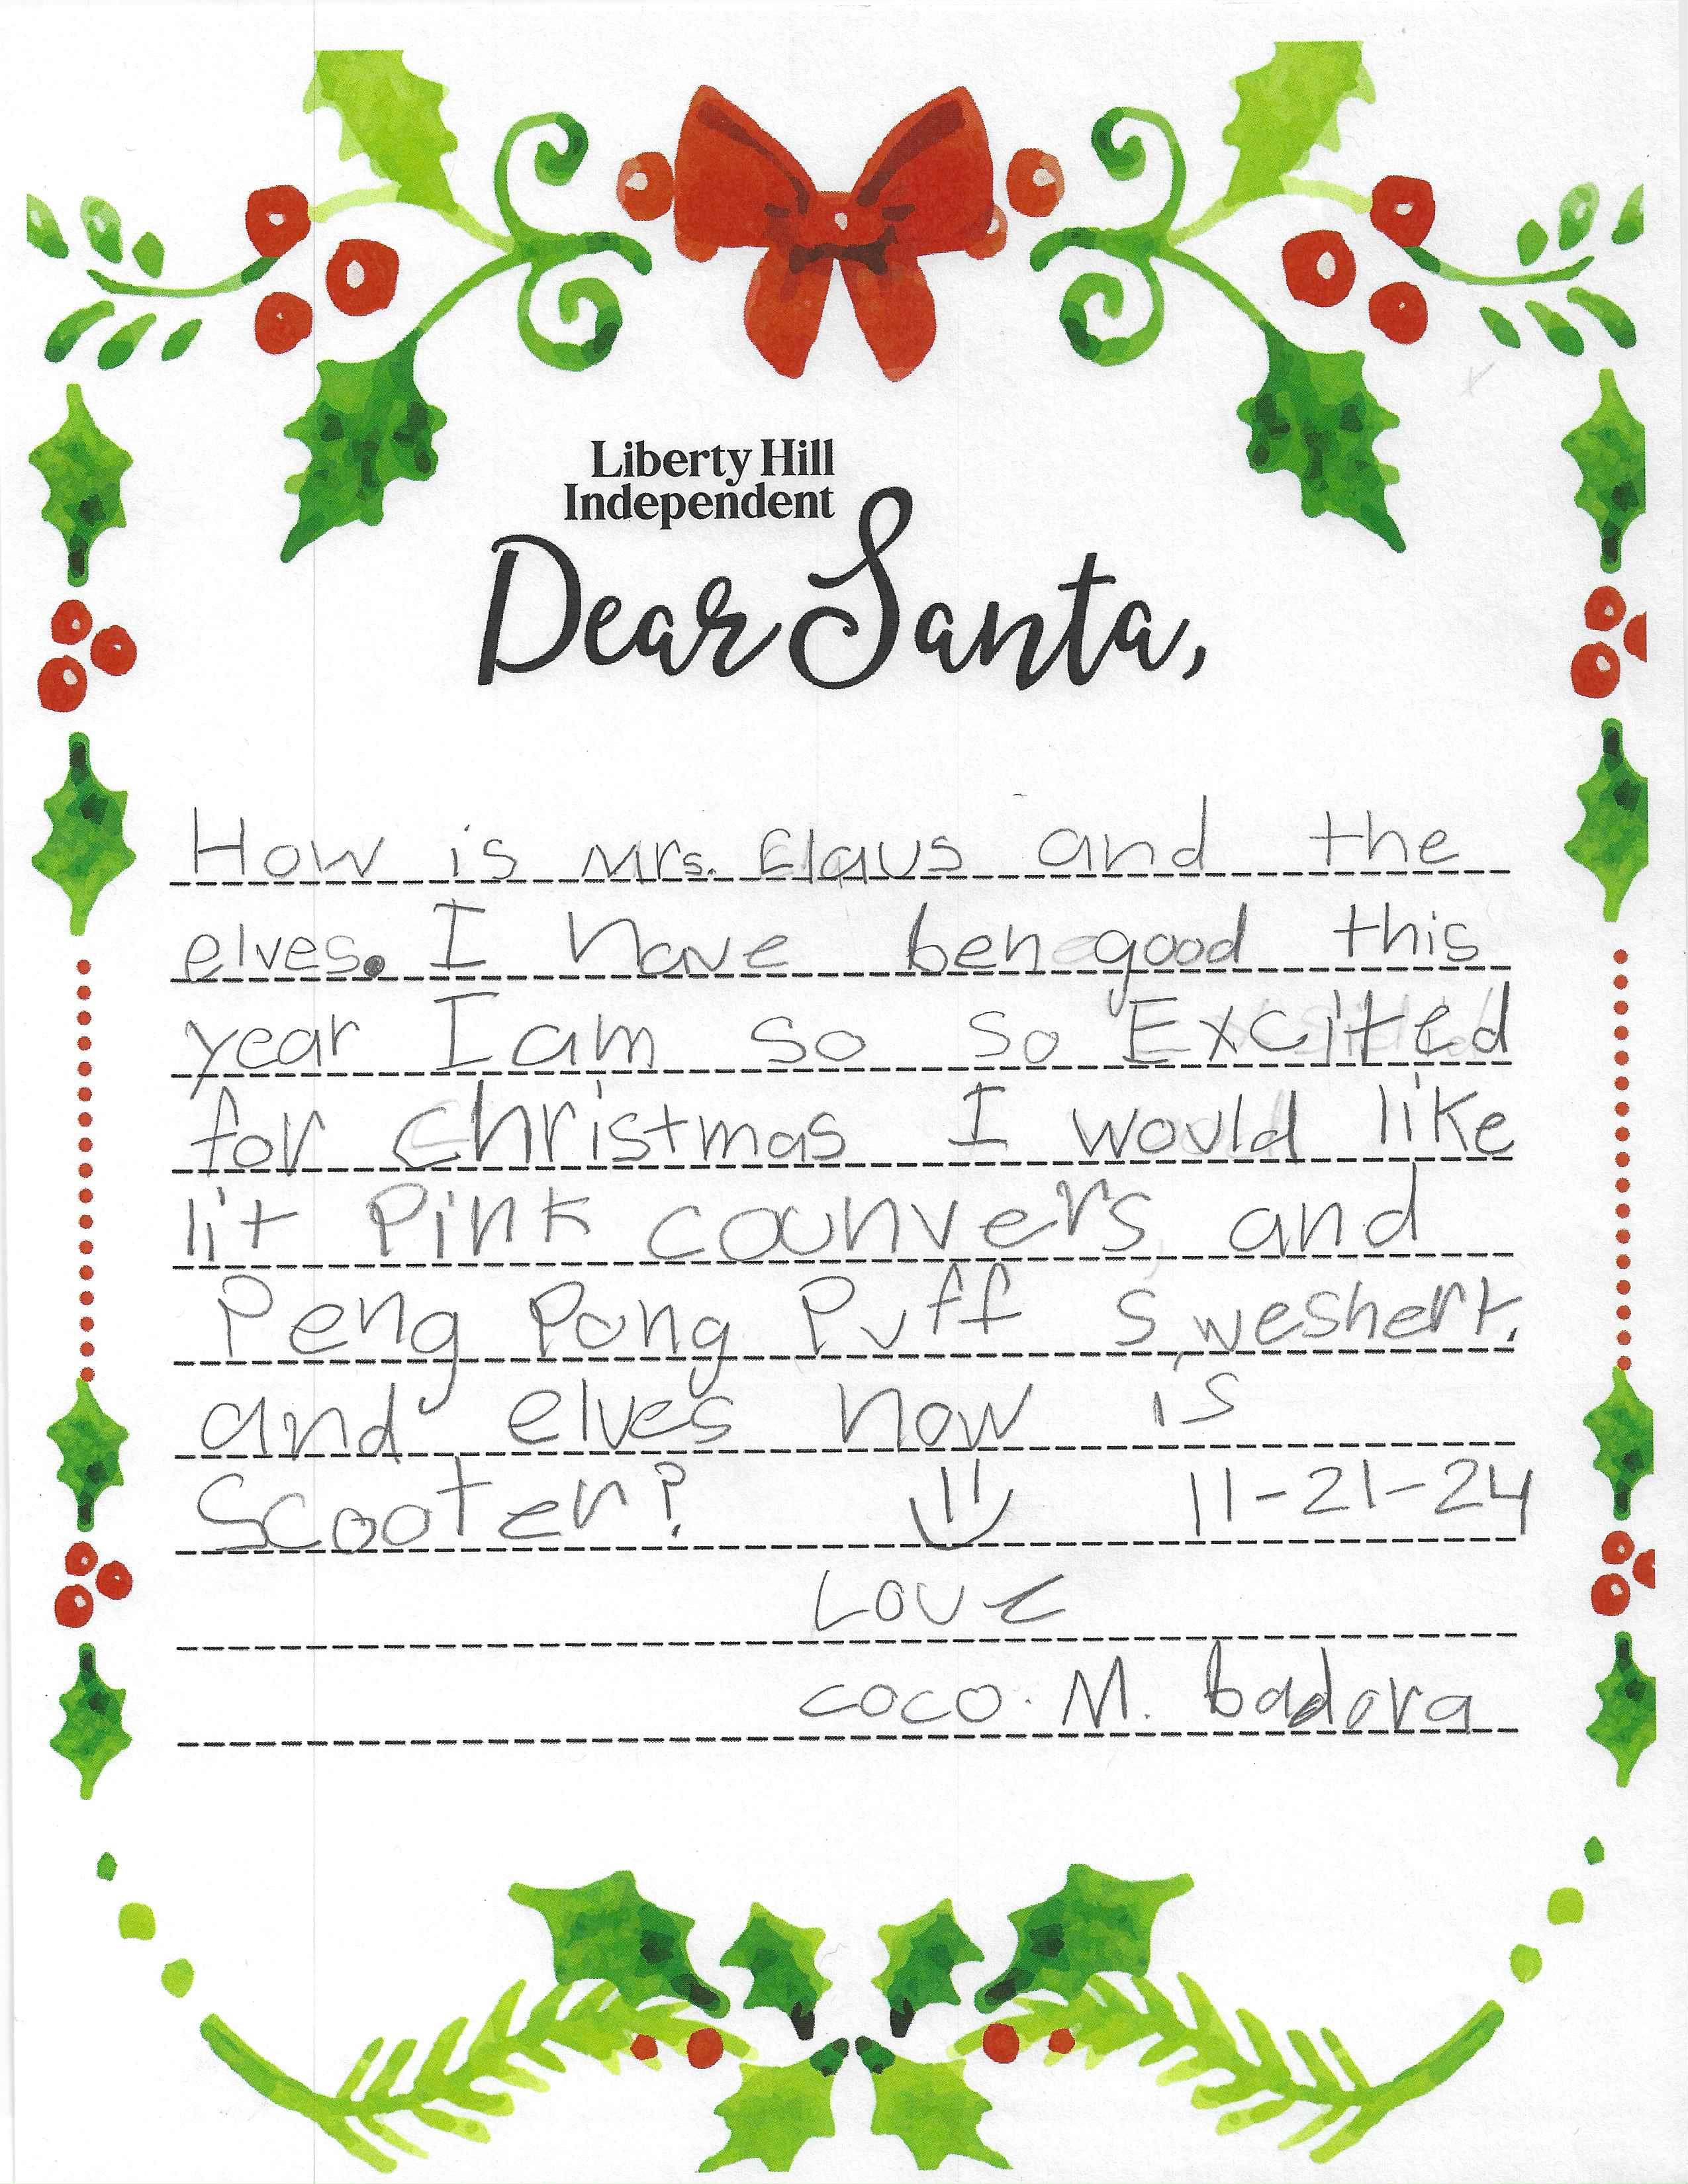 Liberty Hill
Independent
Dear Santa,
How is Mrs. Claus and the
elves. I have ben good this
year I am so so Excited
for christmas I would like
lit Pink counvers and
Peng Pong Puff sweshert.
and elves how is
Scooter? 11-21-24
Love
coco. M. badora